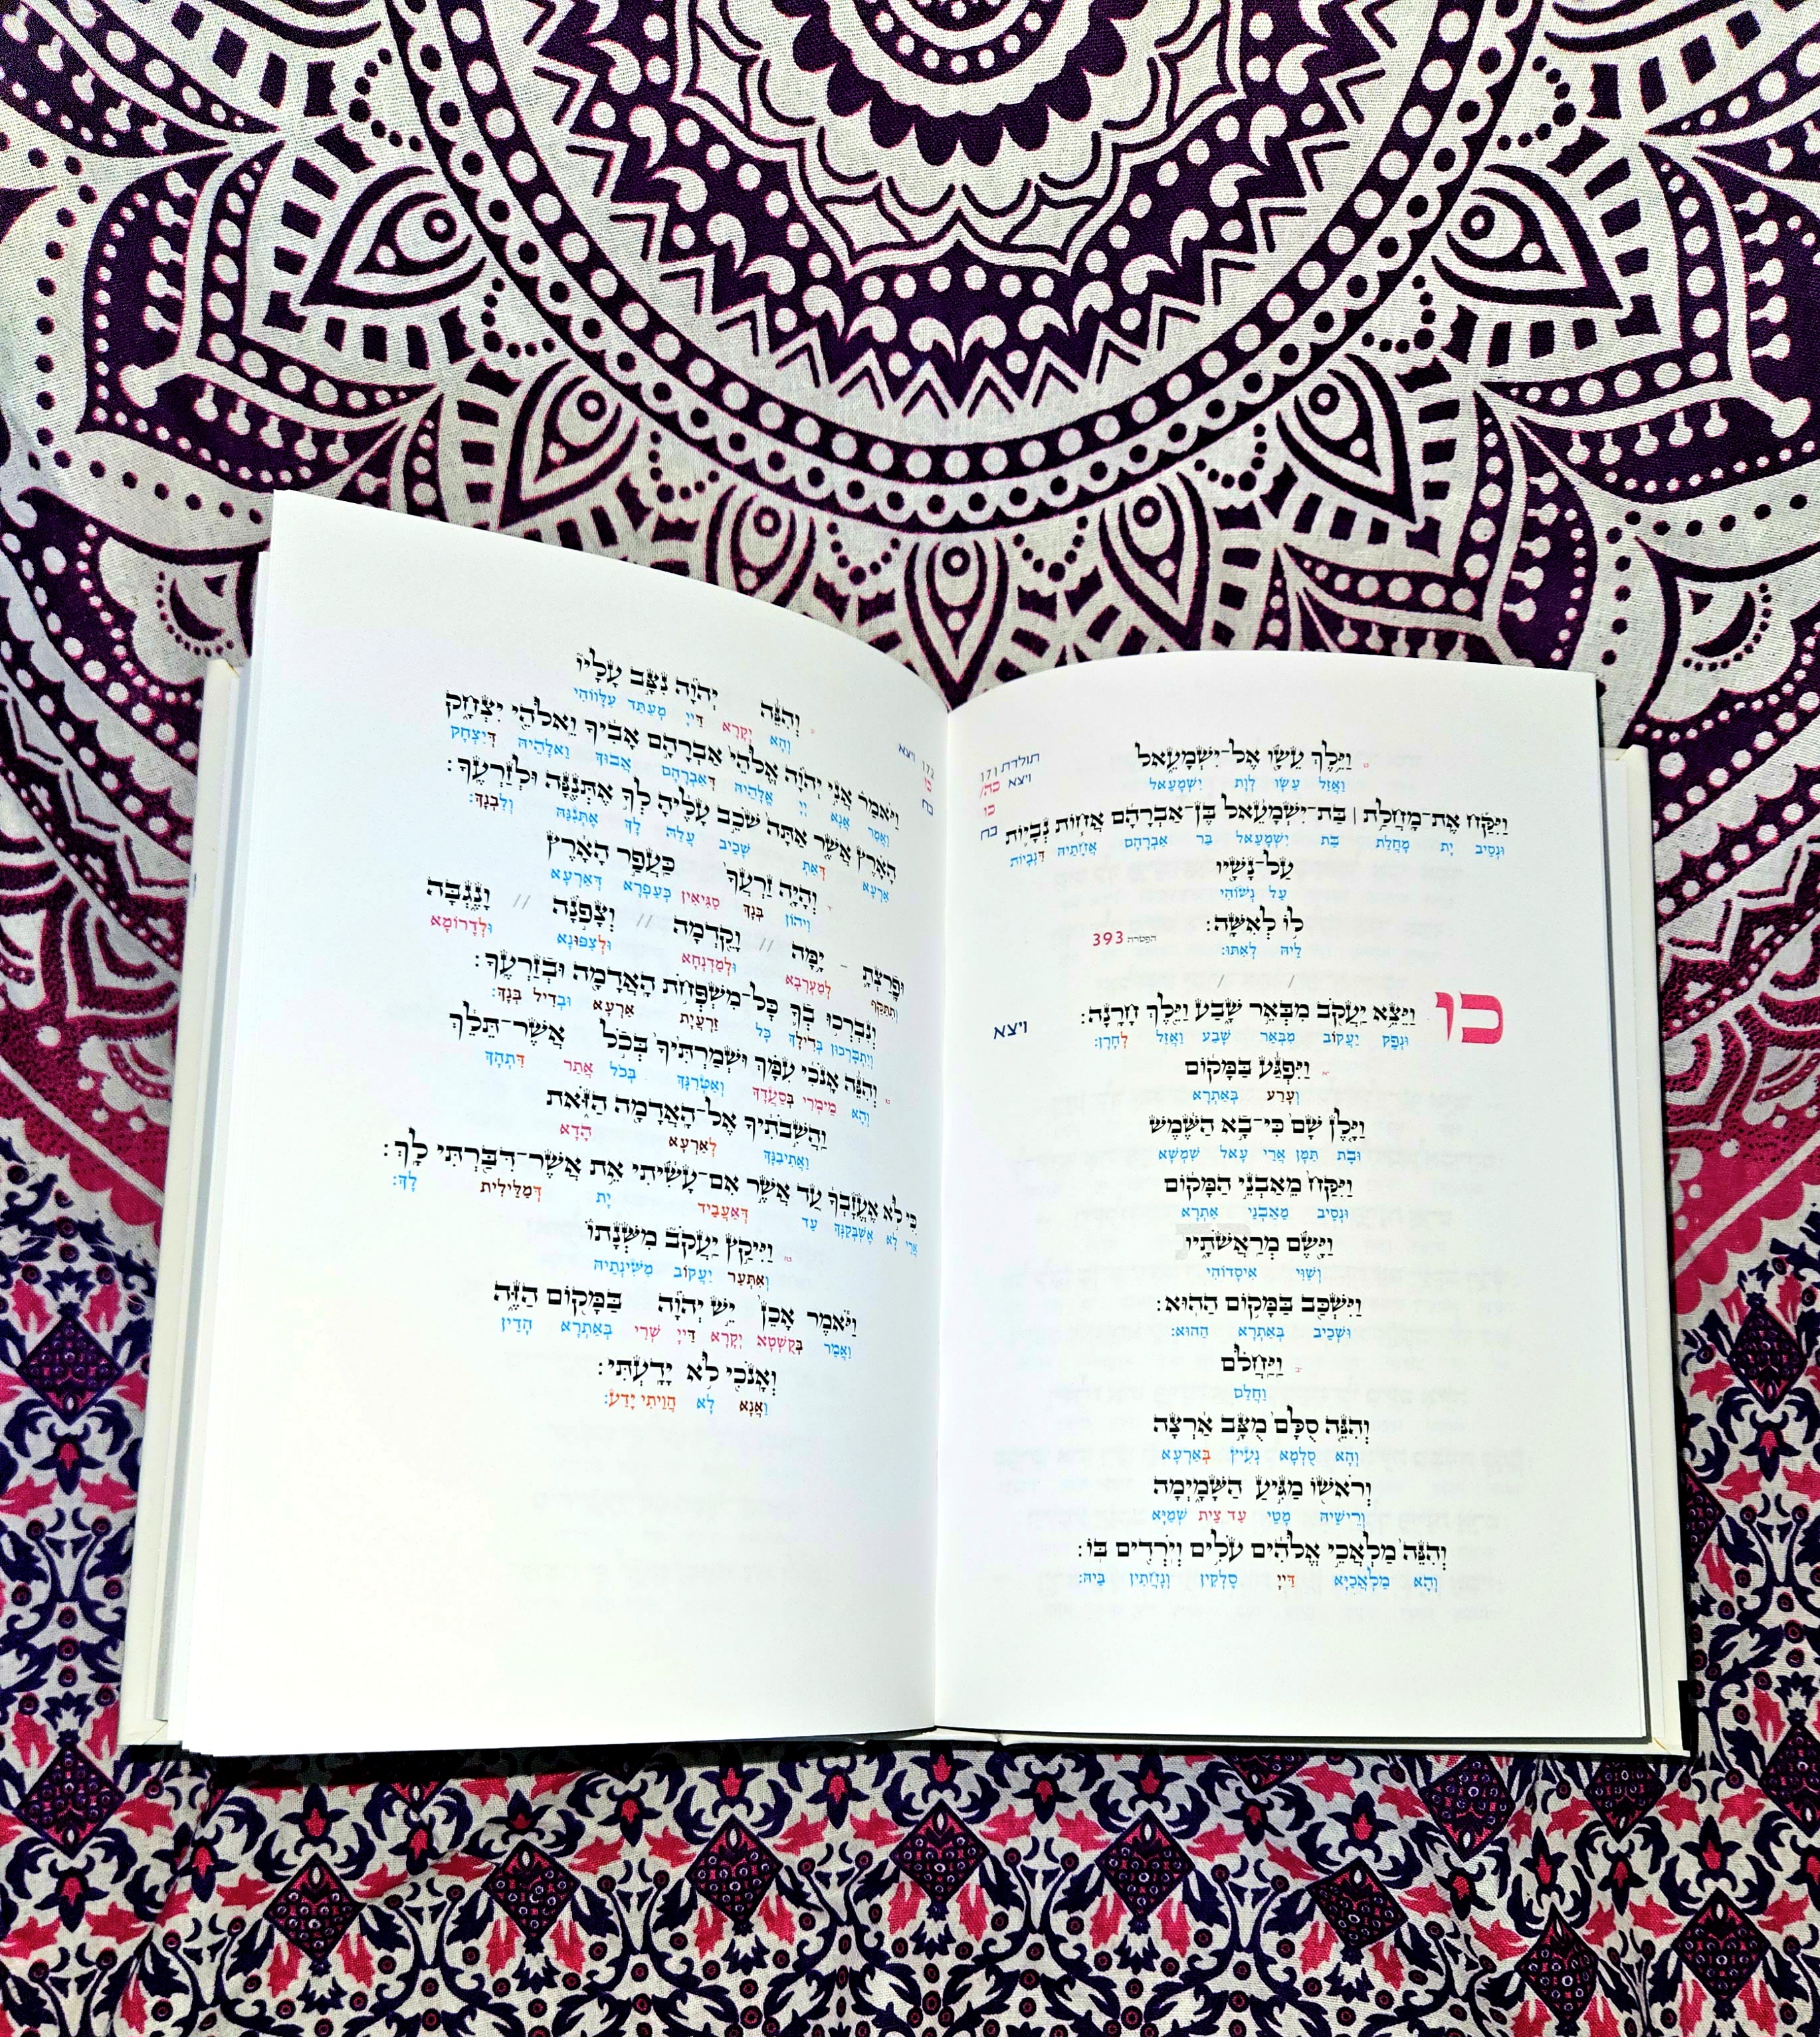 תולדת 171
ויצא כה/
כו
כח
וַיֵּלֶךְ עֵשָׂו אֶל־יִשְׁמָעֵאל
וַאֲזַל עֵשָׂו לְוָת יִשְׁמָעֵאל
וַיִּקַּח אֶת־מָחֲלַת | בַּת־יִשְׁמָעֵאל בֶּן־אַבְרָהָם אֲחוֹת נְבָיוֹת
וּנְסֵיב יָת מָחֲלַת בַּת יִשְׁמָעֵאל בַּר אַבְרָהָם אֲחָתֵיהּ דִּנְבָיוֹת
עַל־נָשָׁיו
עַל נְשׁוֹהִי
לוֹ לְאִשָּׁה:
לֵיהּ לְאִתּוּ:
הפטרה 393
כו
ויצא
וַיֵּצֵא יַעֲקֹב מִבְּאֵר שָׁבַע וַיֵּלֶךְ חָרָנָה:
וּנְפַק יַעֲקוֹב מִבְּאֵר שָׁבַע וַאֲזַל לְחָרָן:
וַיִּפְגַּע בַּמָּקוֹם
וְעָרַע בְּאַתְרָא
וַיָּלֶן שָׁם כִּי־בָא הַשֶּׁמֶשׁ
וּבָת תַּמָּן אֲרֵי עָאל שִׁמְשָׁא
וַיִּקַּח מֵאַבְנֵי הַמָּקוֹם
וּנְסֵיב מֵאַבְנֵי אַתְרָא
וַיָּשֶׂם מְרַאֲשֹׁתָיו
וְשַׁוִּי אִיסָדוֹהִי
וַיִּשְׁכַּב בַּמָּקוֹם הַהוּא:
וּשְׁכֵיב בְּאַתְרָא הַהוּא:
וַיַּחֲלֹם
וַחֲלַם
וְהִנֵּה סֻלָּם מֻצָּב אַרְצָה
וְהָא סֻלְּמָא נְעִיץ בְּאַרְעָא
וְרֹאשׁוֹ מַגִּיעַ הַשָּׁמָיְמָה
וְרֵישֵׁיהּ מָטֵי עַד צֵית שְׁמַיָּא
וְהִנֵּה מַלְאֲכֵי אֱלֹהִים עֹלִים וְיֹרְדִים בּוֹ:
וְהָא מַלְאֲכַיָּא דַּייָ סָלְקִין וְנָחֲתִין בֵּיהּ:
172 ויצא
כו
כח
וְהִנֵּה יְהוָה נִצָּב עָלָיו
וְהָא יְקָרָא דַּייָ מְעַתַּד עִלָּווֹהִי
וַיֹּאמַר אֲנִי יְהוָה אֱלֹהֵי אַבְרָהָם אָבִיךָ וֵאלֹהֵי יִצְחָק
וַאֲמַר אֲנָא יְיָ אֱלָהֵיהּ דְּאַבְרָהָם אֲבוּךְ וֵאלָהֵיהּ דְּיִצְחָק
הָאָרֶץ אֲשֶׁר אַתָּה שֹׁכֵב עָלֶיהָ לְךָ אֶתְּנֶנָּה וּלְזַרְעֶךָ:
אַרְעָא דְּאַתְּ שָׁכֵיב עֲלַהּ לָךְ אֶתְּנִנַּהּ וְלִבְנָךְ:
וְהָיָה זַרְעֲךָ כַּעֲפַר הָאָרֶץ
וִיהוֹן בְּנָךְ סַגִּיאִין כְּעַפְרָא דְּאַרְעָא
וּפָרַצְתָּ – יָמָּה // וָקֵדְמָה // וְצָפֹנָה // וָנֶגְבָּה
וְתִתְקַף לְמַעְרְבָא וּלְמַדְנְחָא וּלְצִפּוּנָא וּלְדָרוֹמָא
וְנִבְרְכוּ בְךָ כָּל־מִשְׁפְּחֹת הָאֲדָמָה וּבְזַרְעֶךָ:
וְיִתְבָּרְכוּן בְּדִילָךְ כָּל זַרְעֲיָת אַרְעָא וּבְדִיל בְּנָךְ:
וְהִנֵּה אָנֹכִי עִמָּךְ וּשְׁמַרְתִּיךָ בְּכֹל אֲשֶׁר־תֵּלֵךְ
וְהָא מֵימְרִי בְּסַעֲדָךְ וְאֶטְּרִנָּךְ בְּכֹל אֲתַר דִּתְהָךְ
וַהֲשִׁבֹתִיךָ אֶל־הָאֲדָמָה הַזֹּאת
וַאֲתִיבִנָּךְ לְאַרְעָא הָדָא
כִּי לֹא אֶעֱזָבְךָ עַד אֲשֶׁר אִם־עָשִׂיתִי אֵת אֲשֶׁר־דִּבַּרְתִּי לָךְ:
אֲרֵי לָא אֶשְׁבְּקִנָּךְ עַד דְּאַעֲבֵיד יָת דְּמַלֵּילִית לָךְ:
וַיִּיקַץ יַעֲקֹב מִשְּׁנָתוֹ
וְאִתְּעַר יַעֲקוֹב מִשֵּׁינְתֵיהּ
וַיֹּאמֶר אָכֵן יֵשׁ יְהוָה בַּמָּקוֹם הַזֶּה
וַאֲמַר בְּקֻשְׁטָא יְקָרָא דַּייָ שָׁרֵי בְּאַתְרָא הָדֵין
וְאָנֹכִי לֹא יָדָעְתִּי:
וַאֲנָא לָא הֲוֵיתִי יָדַע: